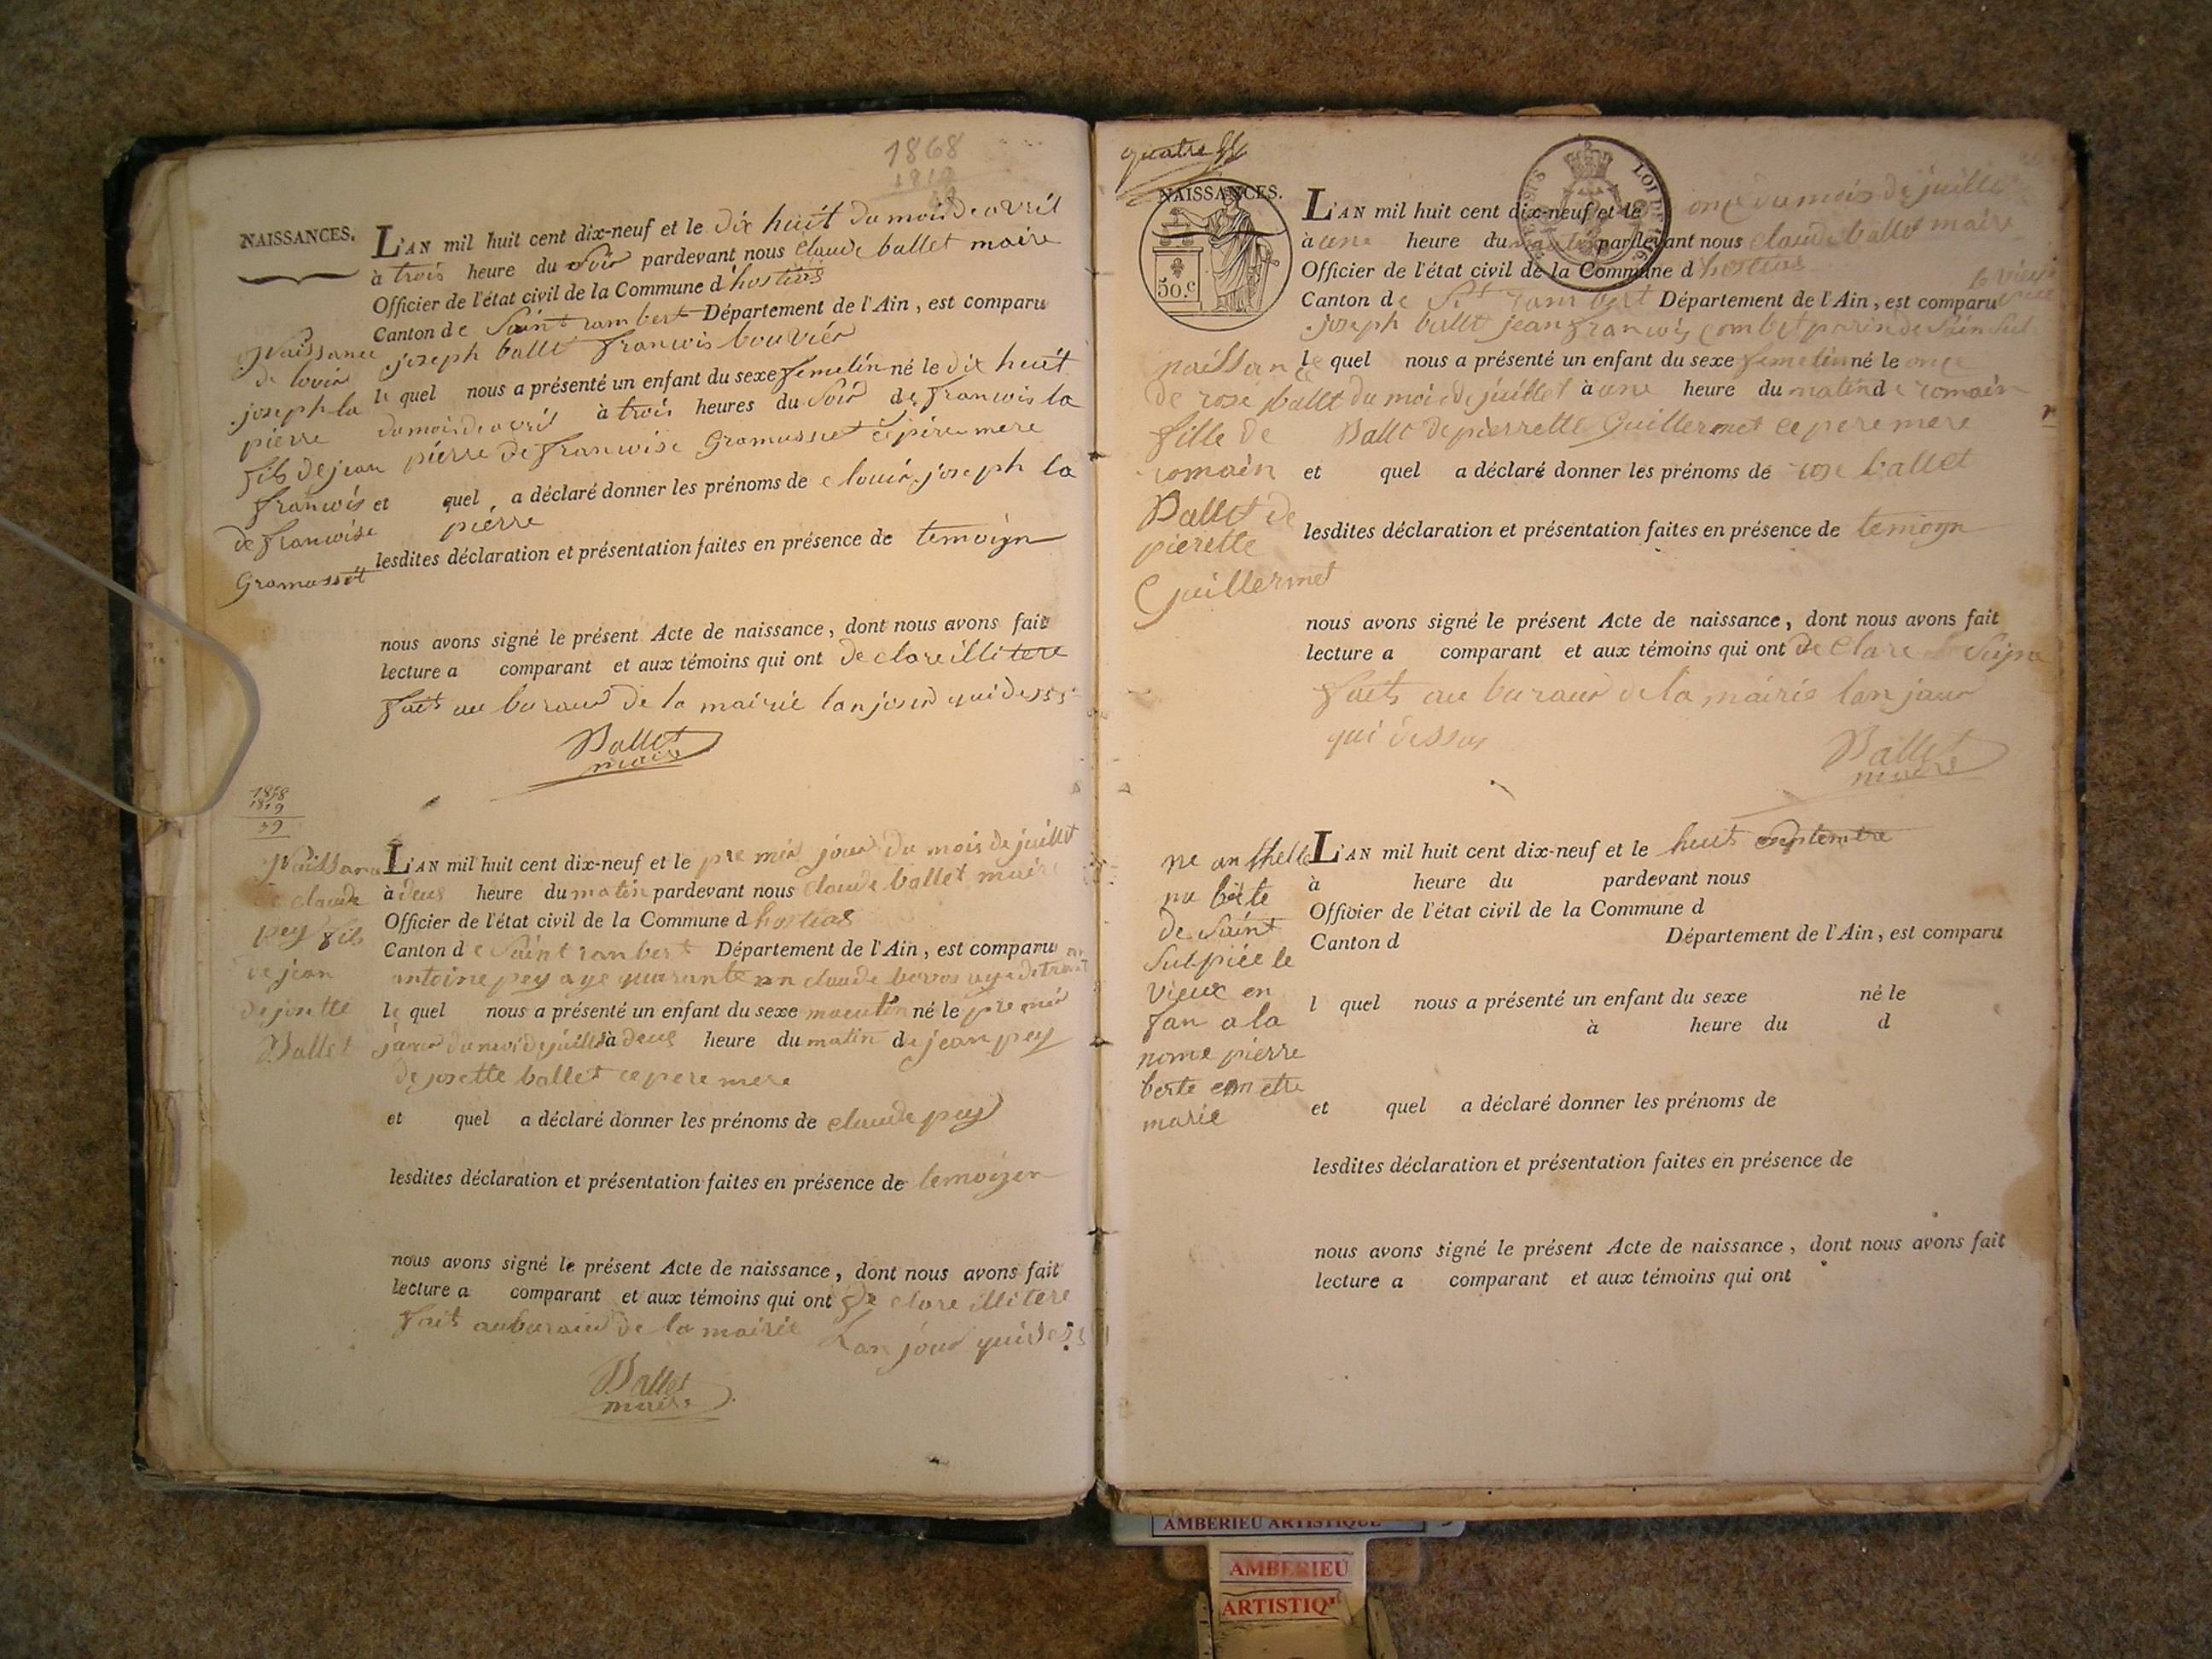 1868
1819
NAISSANCES.
L'AN mil huit cent dix-neuf et le dix huit du mois de avril
à trois heure du soir pardevant nous Claude ballet maire
Officier de l'état civil de la Commune d'hostias
Canton de Saint rambert Département de l'Ain, est comparu
joseph ballet francois bouvier
le quel nous a présenté un enfant du sexe femelin né le dix huit
du mois de avril à trois heures du soir de francois la
pierre de francoise Gramusset ce père mere
et quel a déclaré donner les prénoms de louis joseph la
pierre
lesdites déclaration et présentation faites en présence de temoign
nous avons signé le présent Acte de naissance, dont nous avons fait
lecture a comparant et aux témoins qui ont declare illitere
fait au buraud de la mairie lan jour qui dess
Ballet
maire
Naissance
de louis
joseph la
pierre
fils de jean
francois
de francoise
Gramusset
1858
1819
39
L'AN mil huit cent dix-neuf et le premir jour du mois de juillet
à deus heure du matin pardevant nous claude ballet maire
Officier de l'état civil de la Commune d hostias
Canton de Saint rambert Département de l'Ain, est comparu
antoine pey age quarante an claude
le quel nous a présenté un enfant du sexe masculin né le premir
jour du moi de juillet à deus heure du matin de jean pey
de josette ballet ce pere mere
et quel a déclaré donner les prénoms de claude pey
lesdites déclaration et présentation faites en présence de temoign
nous avons signé le présent Acte de naissance, dont nous avons fait
lecture a comparant et aux témoins qui ont de clare illitere
fait au buraud de la mairie Lan jour qui dess
Ballet
maire
Naissance
de claude
pey fils
de jean
de josette
Ballet
quatre
NAISSANCES.
50.c
LOI DE 1816
L'AN mil huit cent dix-neuf et le onze du mois de juillet
à une heure du matin pardevant nous claude ballet maire
Officier de l'état civil de la Commune d hostias
Canton de St rambert Département de l'Ain, est comparu
le vieux
joseph ballet jean francois combet
le quel nous a présenté un enfant du sexe femelin né le onze
du moi de juillet à une heure du matin de romain
Ballet de pierrette Guillermet ce pere mere
et quel a déclaré donner les prénoms de rose ballet
lesdites déclaration et présentation faites en présence de temoign
nous avons signé le présent Acte de naissance, dont nous avons fait
lecture a comparant et aux témoins qui ont de clare
fait au buraud de la mairie lan jour
qui dessus
Ballet
maire
naissance
de rose ballet
fille de
romain
Ballet de
pierette
Guillermet
L'AN mil huit cent dix-neuf et le huit septembre
à heure du pardevant nous
Officier de l'état civil de la Commune d
Canton d Département de l'Ain, est comparu
l quel nous a présenté un enfant du sexe né le
à heure du d
et quel a déclaré donner les prénoms de
lesdites déclaration et présentation faites en présence de
nous avons signé le présent Acte de naissance, dont nous avons fait
lecture a comparant et aux témoins qui ont
de Saint
Sulpiée le
vieux en
fan a la
nome pierre
berte
marie
AMBERIEU ARTISTIQUE
AMBERIEU
ARTISTIQ